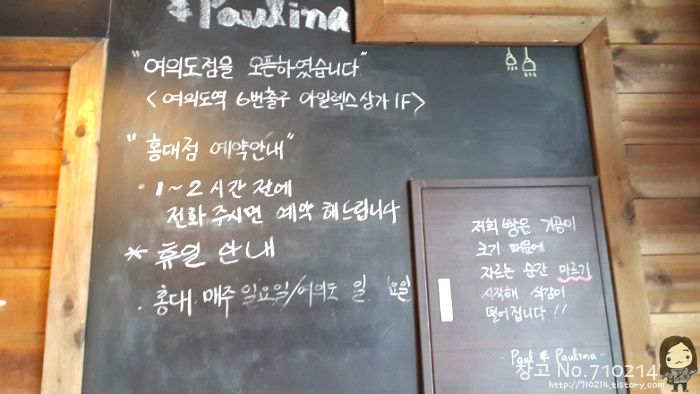 & Paulina
"여의도점을 오픈하였습니다"
< 여의도역 6번출구 아일렉스상가 1F>
"홍대점 예약안내"
· 1~2 시간 전에
전화 주시면 예약 해드립니다
* 휴일 안내
· 홍대 매주 일요일/여의도 일 요일
저희 빵은 기공이
크기 때문에
자르는 순간 마르기
시작해 식감이
떨어집니다!!
- Paul & Paulina -
창고 No.710214
http://710214.tistory.com